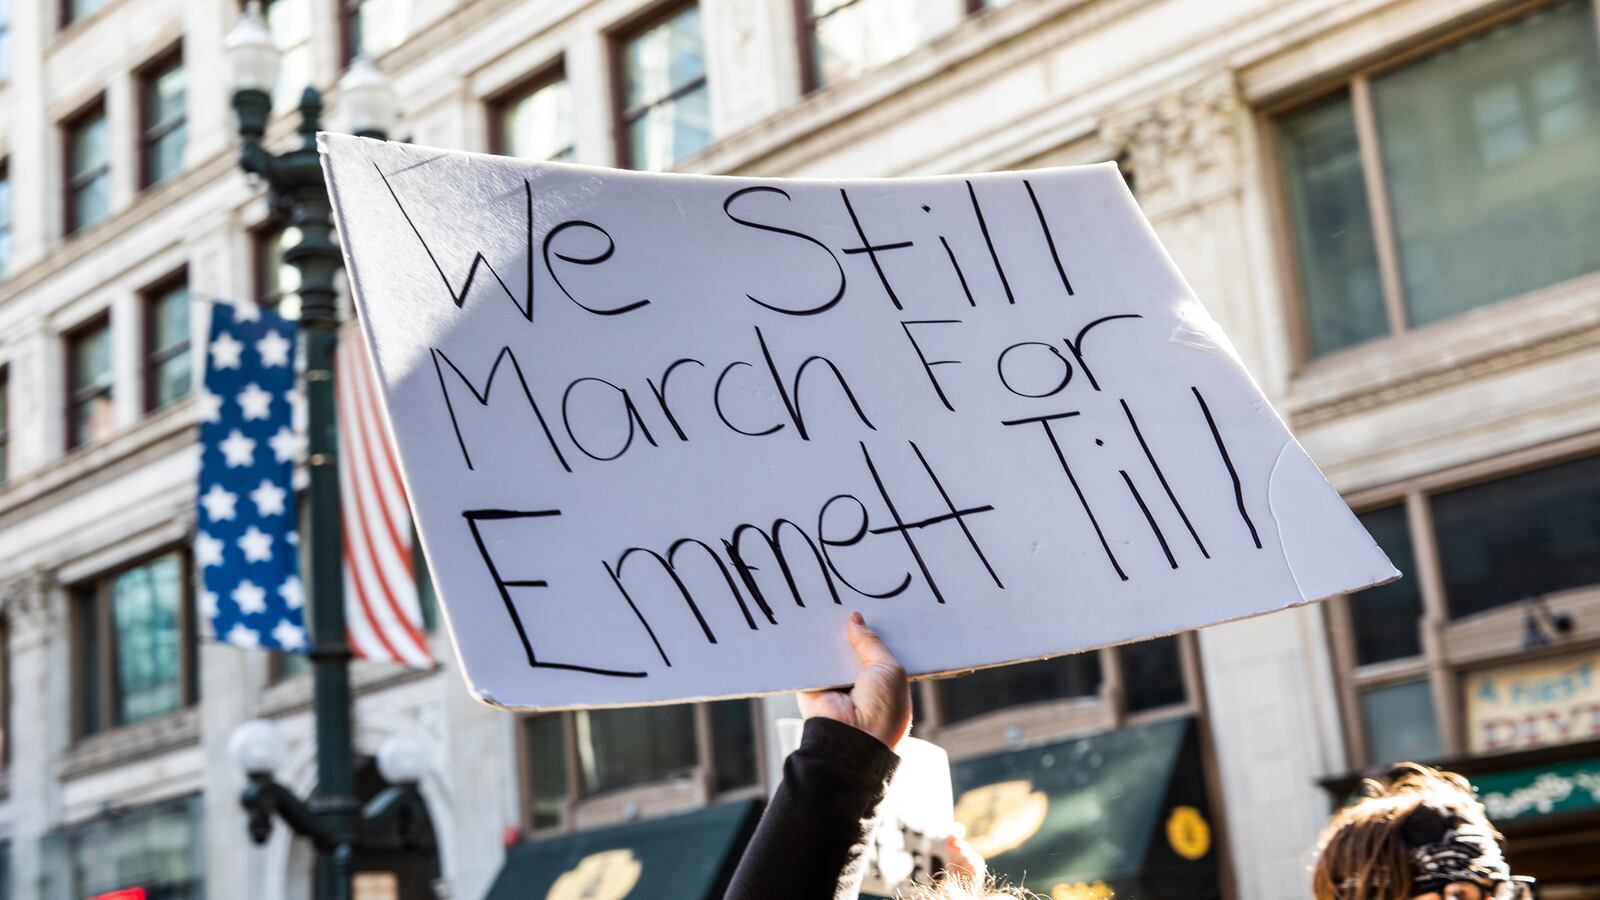 We Still
March For
Emmett Till!
A FIRST
DIV